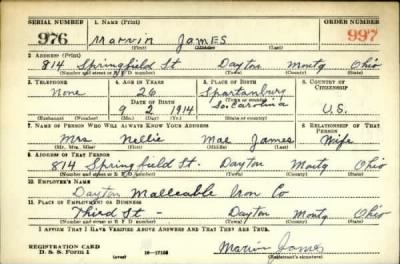 SERIAL NUMBER 1. NAME (Print) ORDER NUMBER
976 Marvin James 997
(First) (Middle) (Last)
2. ADDRESS (Print)
814 Springfield St Dayton Montg Ohio
(Number and street or R. F. D. number) (Town) (County) (State)
3. TELEPHONE 4. AGE IN YEARS 5. PLACE OF BIRTH 6. COUNTRY OF CITIZENSHIP
None 26 Spartanburg
DATE OF BIRTH (Town or county)
9 2 1914 So. Carolia U.S.
(Exchange) (Number) (Mo.) (Day) (Yr.) (State or country)
7. NAME OF PERSON WHO WILL ALWAYS KNOW YOUR ADDRESS 8. RELATIONSHIP OF THAT PERSON
Mrs Nellie Mae James Wife
(Mr., Mrs., Miss) (First) (Middle) (Last)
9. ADDRESS OF THAT PERSON
814 Springfield St. Dayton Montg Ohio
(Number and street or R. F. D. number) (Town) (County) (State)
10. EMPLOYER'S NAME
Dayton Malleable Iron Co
11. PLACE OF EMPLOYMENT OR BUSINESS
Third St - Dayton Montg Ohio
(Number and street or R. F. D. number) (Town) (County) (State)
I AFFIRM THAT I HAVE VERIFIED ABOVE ANSWERS AND THAT THEY ARE TRUE.
REGISTRATION CARD
D. S. S. Form 1 (over) 16-17105 Marvin James
(Registrant's signature)